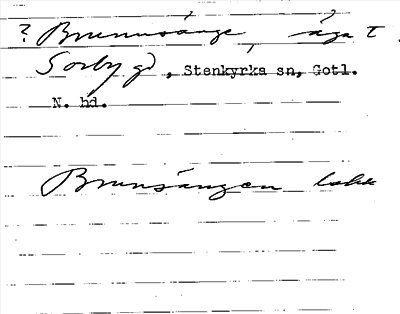 ? Brunnsänge, äga t
Sorby gd, Stenkyrka sn, Gotl.
N. hd.
Brunsängen